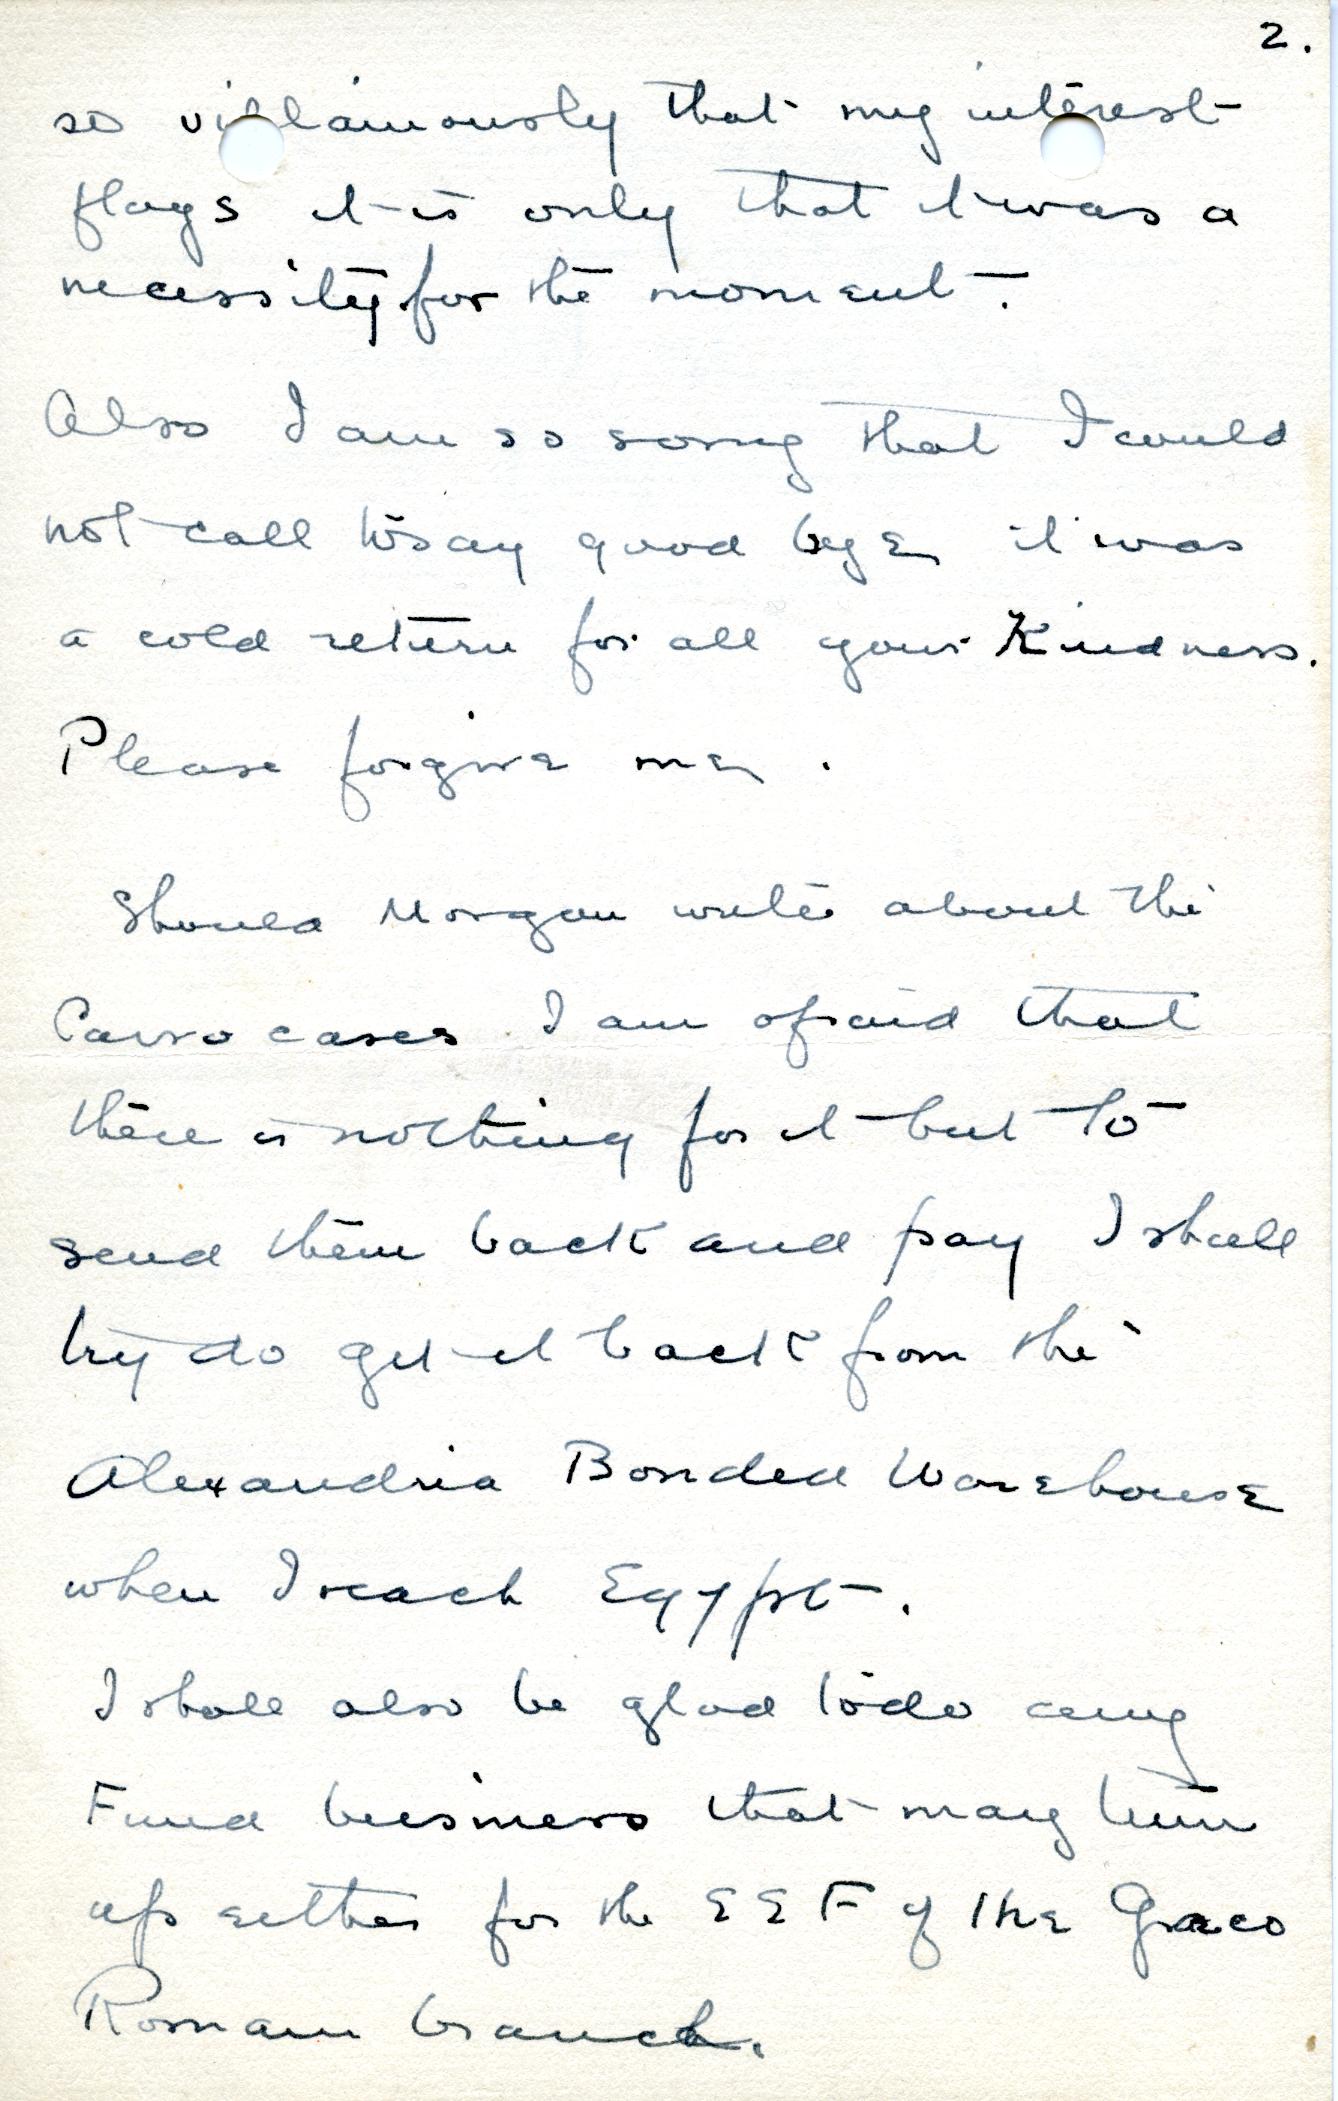 2.
so villainously that my interest
flags it is only that it was a
necessity for the moment.
Also I am so sorry that I could
not call to say good bye it was
a cold return for all your Kindness.
Please forgive me.
Should Morgan write about the
Cairo cases I am afraid that
there is nothing for it but to
send them back and pay I shall
try do get it back from the
Alexandria Bonded Warehouse
when I reach Egypt.
I shall also be glad to do any
Fund business that may turn
up either for the EEF of the Graeco
Roman branch.